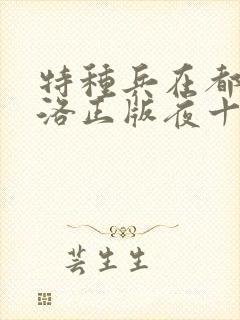 特種兵在都
洛正版夜十
芸生生